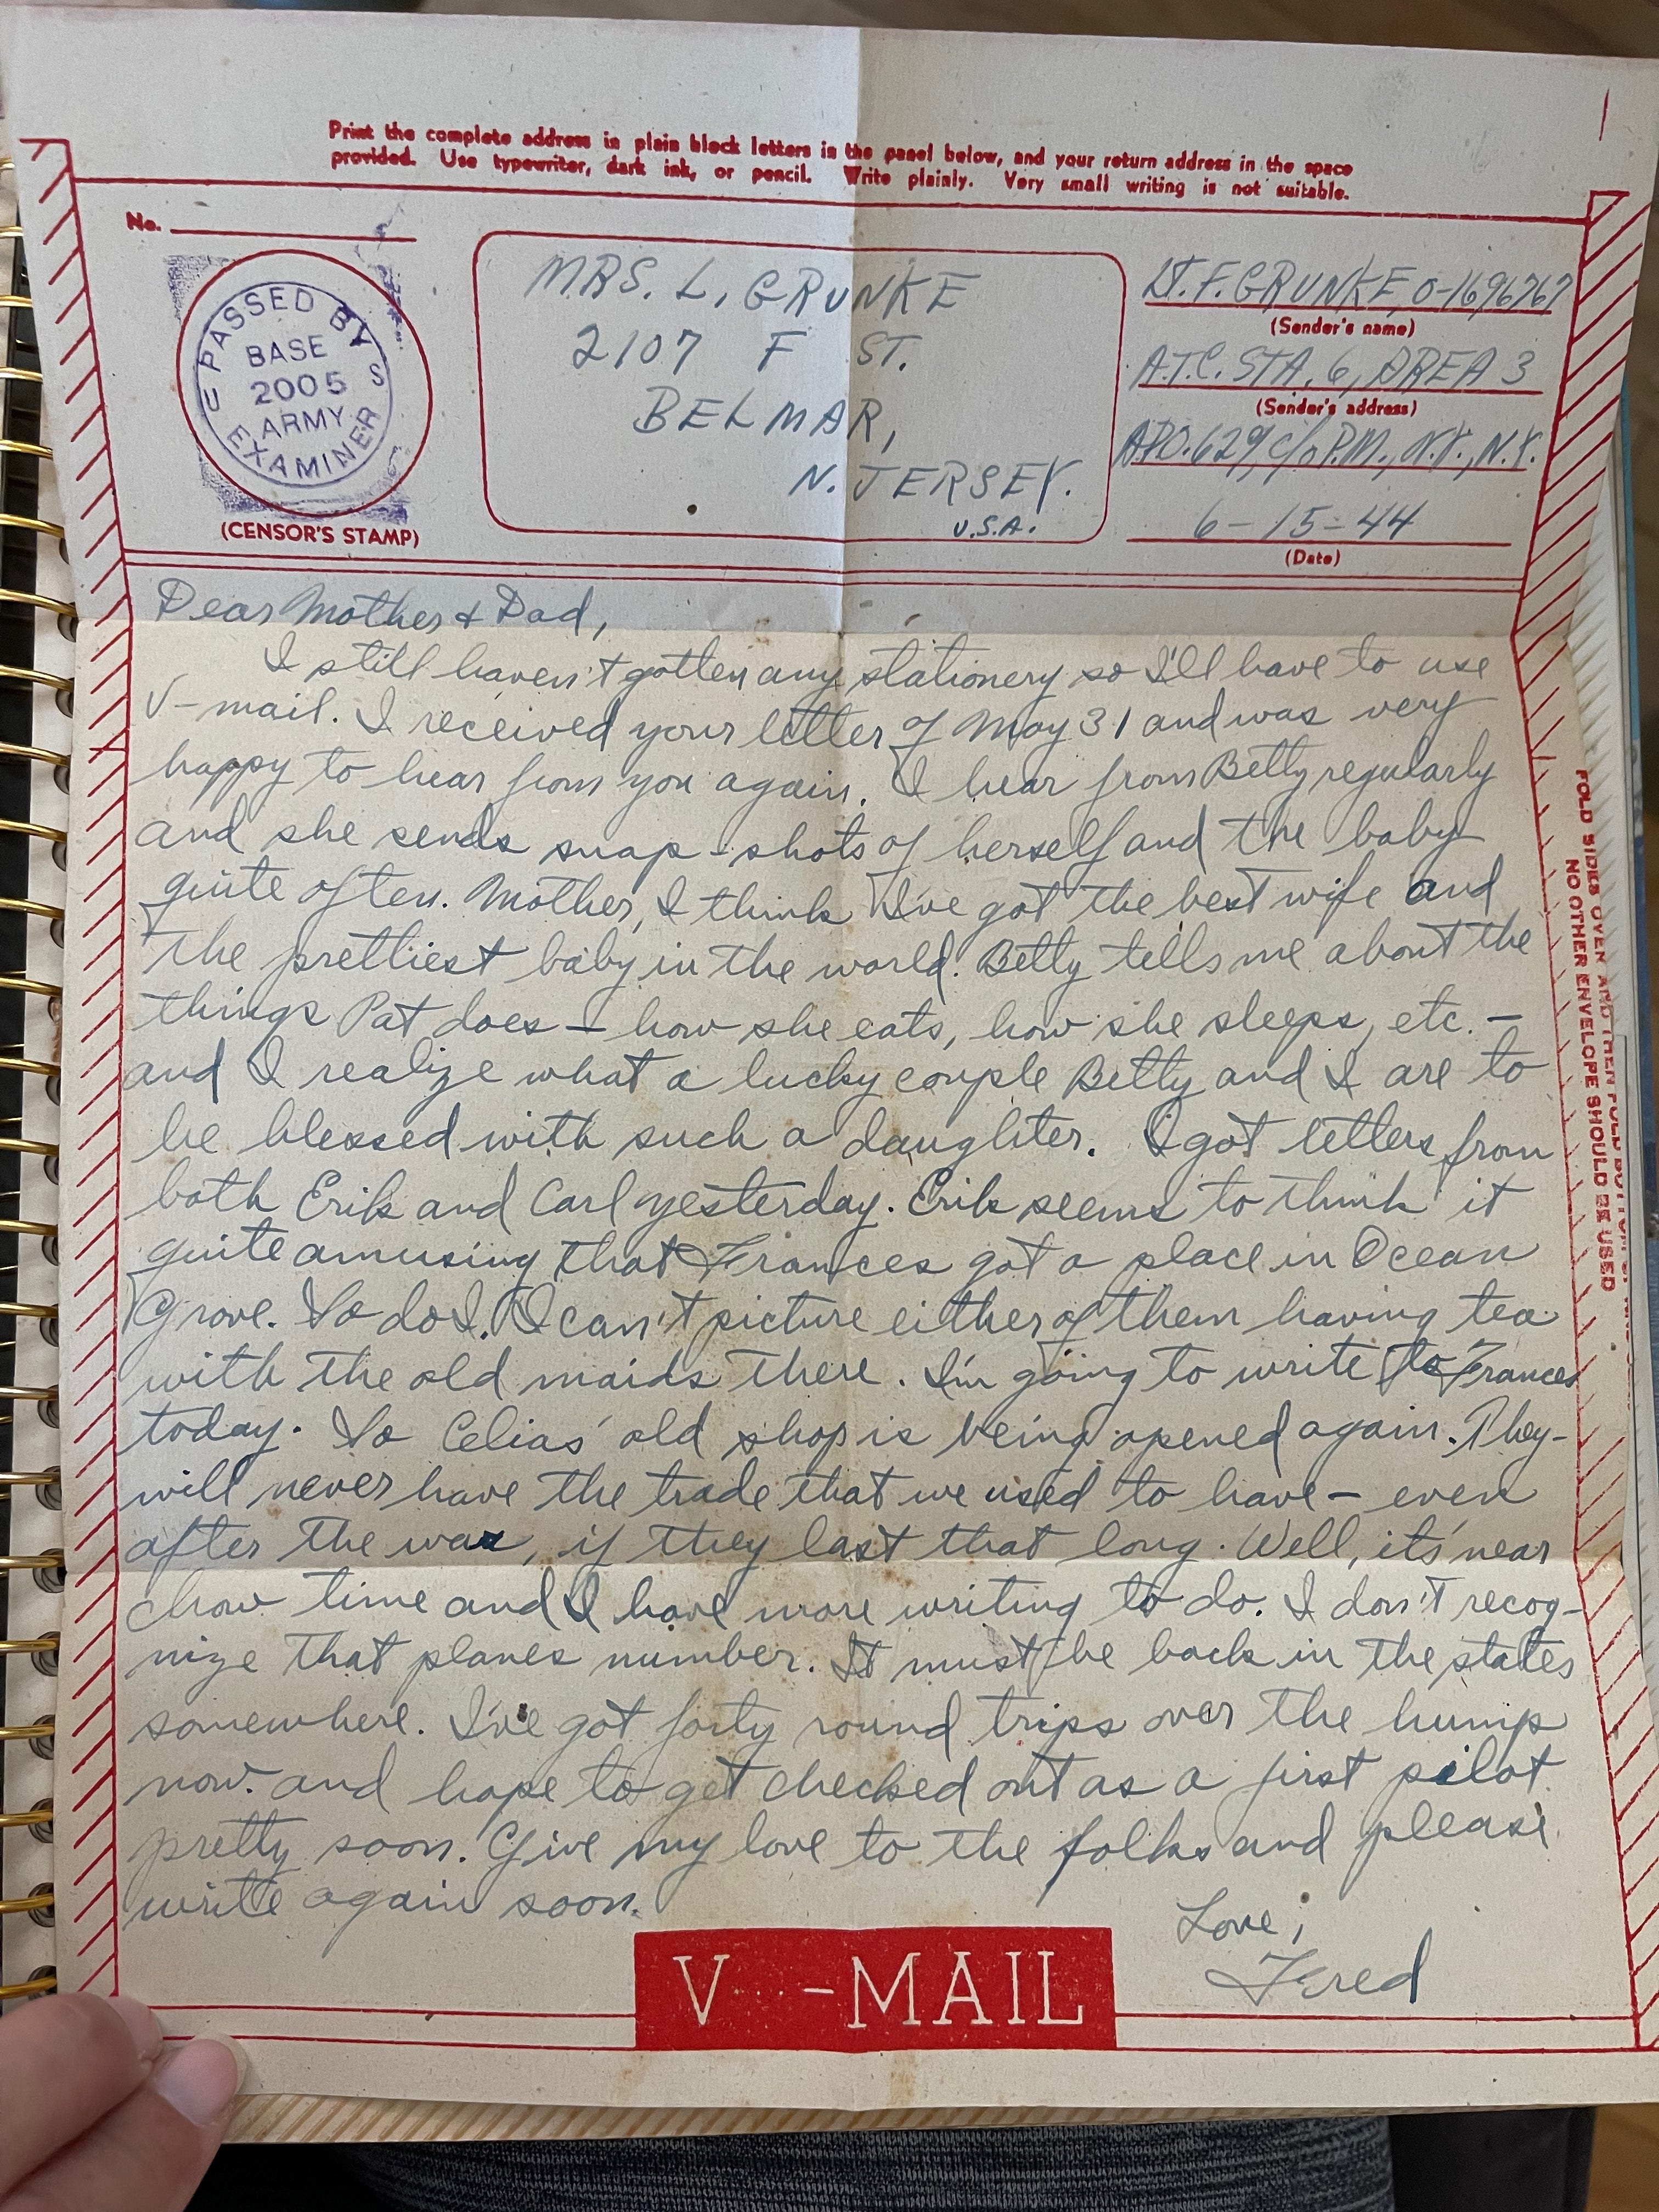 Print the complete address in plain block letters in the panel below, and your return address in the space
provided. Use typewriter, dark ink, or pencil. Write plainly. Very small writing is not suitable.
No.
PASSED BY
U S
BASE
2005
ARMY
EXAMINER
(CENSOR'S STAMP)
MRS. L. GRUNKE
2107 F ST.
BELMAR,
N. JERSEY.
U.S.A.
LT. F. GRUNKE, O-1696767
(Sender's name)
A.T.C. STA. 6, AREA 3
(Sender's address)
A.P.O. 629, c/o P.M., N.Y., N.Y.
6-15-44
(Date)
Dear Mother & Dad,
I still haven't gotten any stationery so I'll have to use
V-mail. I received your letter of May 31 and was very
happy to hear from you again. I hear from Betty regularly
and she sends snap-shots of herself and the baby
quite often. Mother, I think I've got the best wife and
the prettiest baby in the world. Betty tells me about the
things Pat does — how she eats, how she sleeps, etc. —
and I realize what a lucky couple Betty and I are to
be blessed with such a daughter. I got letters from
both Erik and Carl yesterday. Erik seems to think it
quite amusing that Frances got a place in Ocean
Grove. So do I. I can't picture either of them having tea
with the old maids there. I'm going to write to Frances
today. So Celias' old shop is being opened again. They
will never have the trade that we used to have — even
after the war, if they last that long. Well, it's near
chow time and I have more writing to do. I don't recog-
nize that planes number. It must be back in the states
somewhere. I've got forty round trips over the hump
now and hope to get checked out as a first pilot
pretty soon. Give my love to the folks and please
write again soon.
Love,
Fred
V -MAIL
FOLD SIDES OVER AND THEN FOLD
NO OTHER ENVELOPE SHOULD BE USED